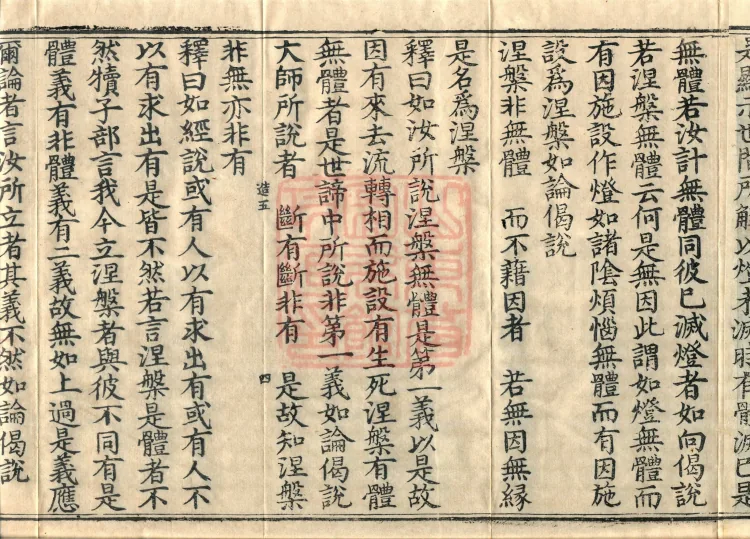 顯示世間所解以燈等滅時有體滅已是
無體若汝計無體同彼已滅燈者如向偈說
若涅槃無體云何是無因此謂如燈無體而
有因施設作燈如諸陰煩惱無體而有因施
設爲涅槃如論偈說
涅槃非無體 而不藉因者 若無因無緣
是名爲涅槃
釋曰如汝所說涅槃無體是第一義以是故
因有來去流轉相而施設有生死涅槃有體
無體者是世諦中所說非第一義如論偈說
大師所說者 斷有斷非有 是故知涅槃
造五 四
非無亦非有
釋曰如經說或有人以有求出有或有人不
以有求出有是皆不然若言涅槃是體者不
然犢子部言我今立涅槃者與彼不同有是
體義有非體義有二義故無如上過是義應
爾論者言汝所立者其義不然如論偈說